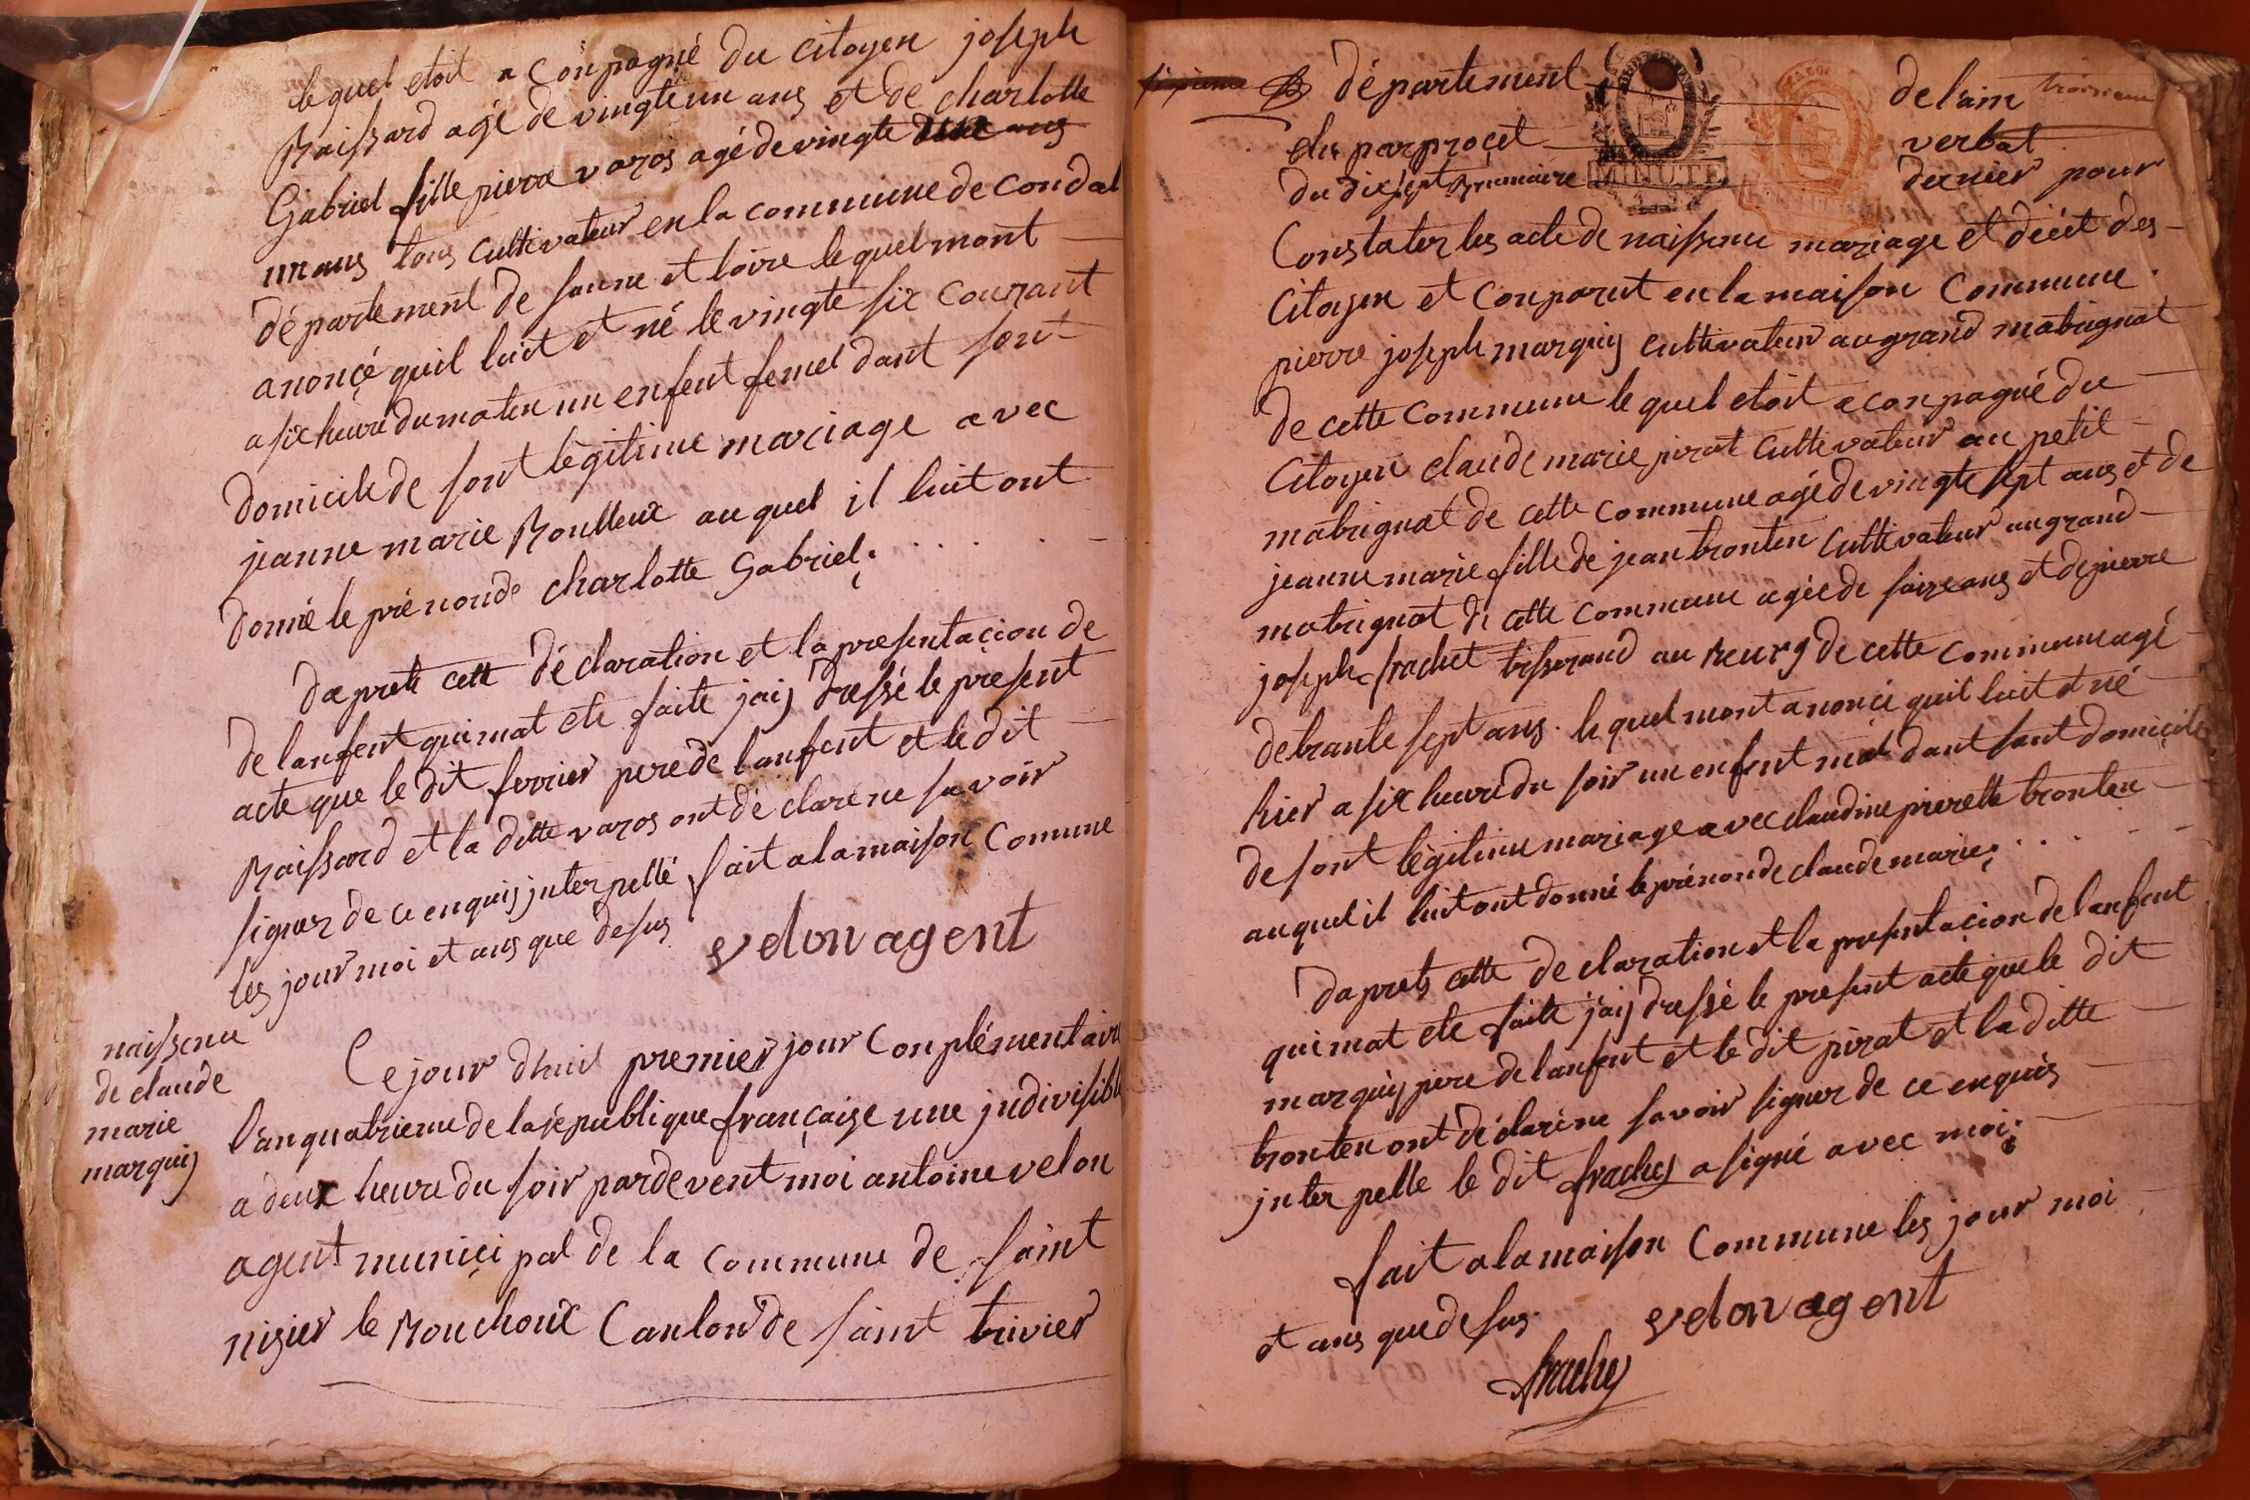 le quel etoit a conpagné du citoyen joseph
Raissard agé de vingte un ans et de charlotte
Gabriel fille pierre varos agé de vingte ans
un ans tous cultivateur en la commune de condal
département de saune et loire le quel mont
anoncé quil luit et né le vingte six courant
a six heure du maten un enfent femel dant sont
domicile de sont légitime mariage avec
jeanne marie Roulleux au quel il luit ont
donné le prénon de charlotte Gabriel.
daprets cette déclaration et la presentacion de
de lanfent qui mat ete faite jaij dressé le present
acte que le dit ferrier pere de lanfent et le dit
Raissard et la ditte varos ont déclaré ne savoir
signer de ce enquij jnterpellé fait a la maison comune
les jour moi et ans que desus
velon agent
naissenu
de claude
marie
marquij
Ce jour dhuit premier jour conplémentaire
lan quatrieme de la république française une jndivisible
a deux heure du soir pardevent moi antoine velon
agent municipal de la commune de saint
nisier le Bouchoux canton de saint trivier
sixieme département de lain troisieme
elu par procet verbat
du dixsept brumaire dernier pour
MINUTE
Constater les acte de naissenu mariage et décét des
citoyen et conparut en la maison commune
pierre joseph marquij cultivateur au grand matrignat
de cette commune le quel etoit aconpagné du
Citoyen claude marie pirat cultivateur au petit
matrignat de cette commune agé de vingte sept ans et de
jeanne marie fille de jean tronten cultivateur au grand
matrignat de cette commune agée de saize ans et de pierre
joseph frachet tisserand au Beurg de cette commune agé
de trante sept ans. le quel mont anoncé quil luit et né
hier a six heure du soir un enfent mal dant sont domicile
de sont légitime mariage avec claudine pierette tronten
au quel il luit ont donné le prénon de claude marie.
daprets cette declaration et la presentacion de lanfent
qui mat ete faite jaij dressé le present acte que le dit
marquij pere de lanfent et le dit pirat et la ditte
tronten ont déclaré ne savoir signer de ce enquis
jnterpelle le dit frachej a signé avec moi.
fait a la maison commune les jour moi
et ans que desus. velon agent
frachej